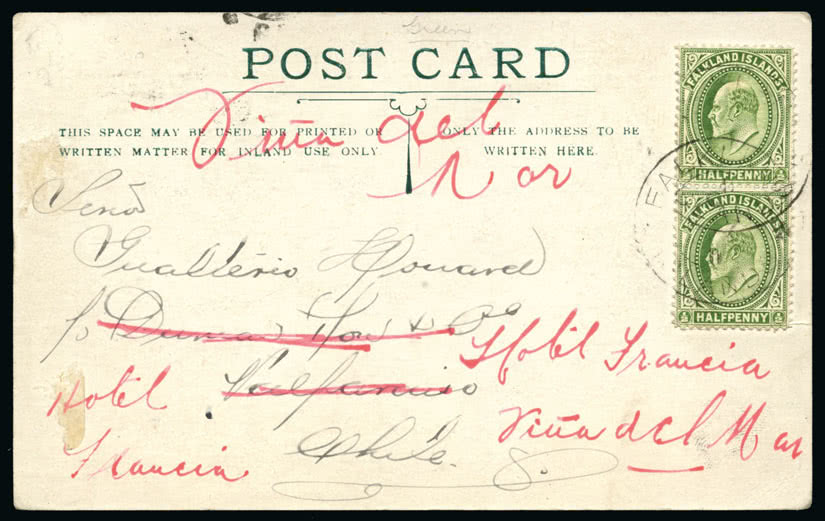 Green
POST CARD
Viña del
Mar
THIS SPACE MAY BE USED FOR PRINTED OR
WRITTEN MATTER FOR INLAND USE ONLY
ONLY THE ADDRESS TO BE
WRITTEN HERE.
FALKLAND ISLANDS
HALFPENNY
FALKLAND ISLANDS
HALFPENNY
Señor
Gualtério Howard
c/o Duncan Fox & Co
Valparaiso
Chile.
Hotel Francia
Viña del Mar
Hotel
Francia